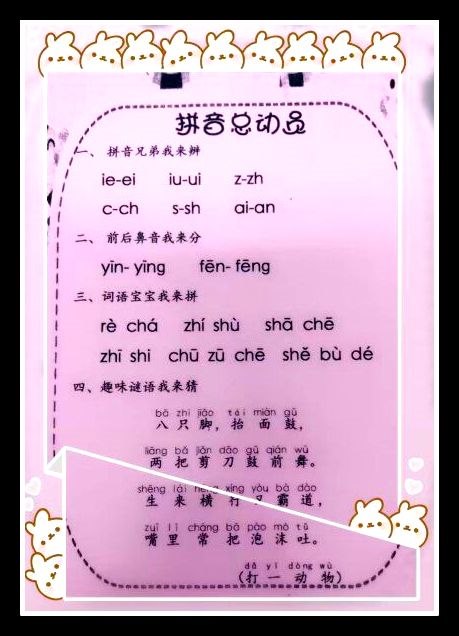 拼音总动员
一、拼音兄弟我来辨
ie-ei iu-ui z-zh
c-ch s-sh ai-an
二、前后鼻音我来分
yīn-yīng fēn-fēng
三、词语宝宝我来拼
rè chá zhí shù shā chē
zhī shi chū zū chē shě bù dé
四、趣味谜语我来猜
bā zhī jiǎo tái miàn gǔ
八只脚，抬面鼓，
liǎng bǎ jiǎn dāo gǔ qián wǔ
两把剪刀鼓前舞。
shēng lái héng xíng yòu bà dào
生来横行又霸道，
zuǐ lǐ cháng bǎ pào mò tǔ
嘴里常把泡沫吐。
dǎ yī dòng wù
（打一动物）